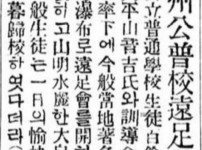 州公普校遠足
立普通學校生徒百餘
平山音吉氏와訓導
率下에今般當地著名
瀑布로遠足會를開
하고山明水麗한大自
般生徒는一日의愉快
暮歸校하엿다더라(